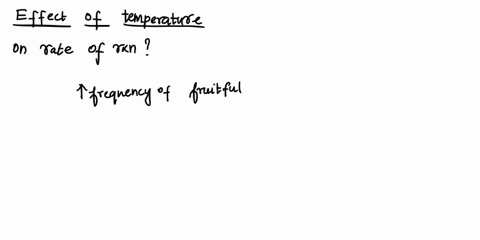 Effect of temperature
on rate of rxn ?
↑ frequency of fruitful